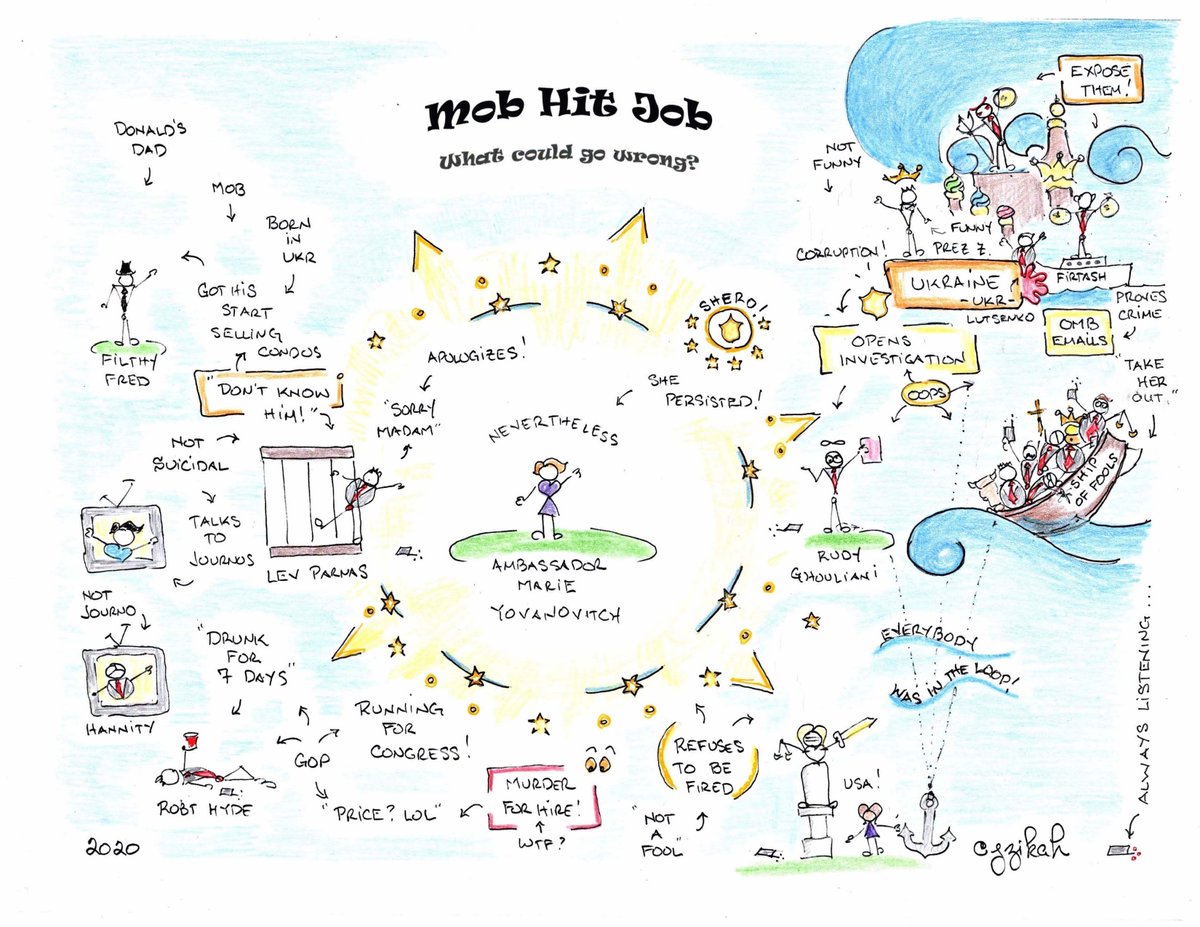 Mob Hit Job
What could go wrong?
DONALD'S
DAD
MOB
BORN
IN
UKR
GOT HIS
START
SELLING
CONDOS
FILTHY
FRED
"DON'T KNOW
HIM!"
NOT
SUICIDAL
TALKS
TO
JOURNOS
LEV PARNAS
NOT
JOURNO
HANNITY
"DRUNK
FOR
7 DAYS"
ROBT HYDE
GOP
RUNNING
FOR
CONGRESS!
"PRICE? LOL"
MURDER
FOR HIRE!
WTF?
"NOT
A
FOOL"
REFUSES
TO BE
FIRED
APOLOGIZES!
"SORRY
MADAM"
NEVERTHELESS
SHE
PERSISTED!
SHERO!
AMBASSADOR
MARIE
YOVANOVITCH
NOT
FUNNY
CORRUPTION!
FUNNY
PREZ Z.
EXPOSE
THEM!
UKRAINE
-UKR-
LUTSENKO
FIRTASH
OPENS
INVESTIGATION
OOPS
OMB
EMAILS
PROVES
CRIME
"TAKE
HER
OUT."
SHIP
OF FOOLS
RUDY
GHOULIANI
EVERYBODY
WAS IN THE LOOP!
USA!
ALWAYS LISTENING....
2020
©jzikah